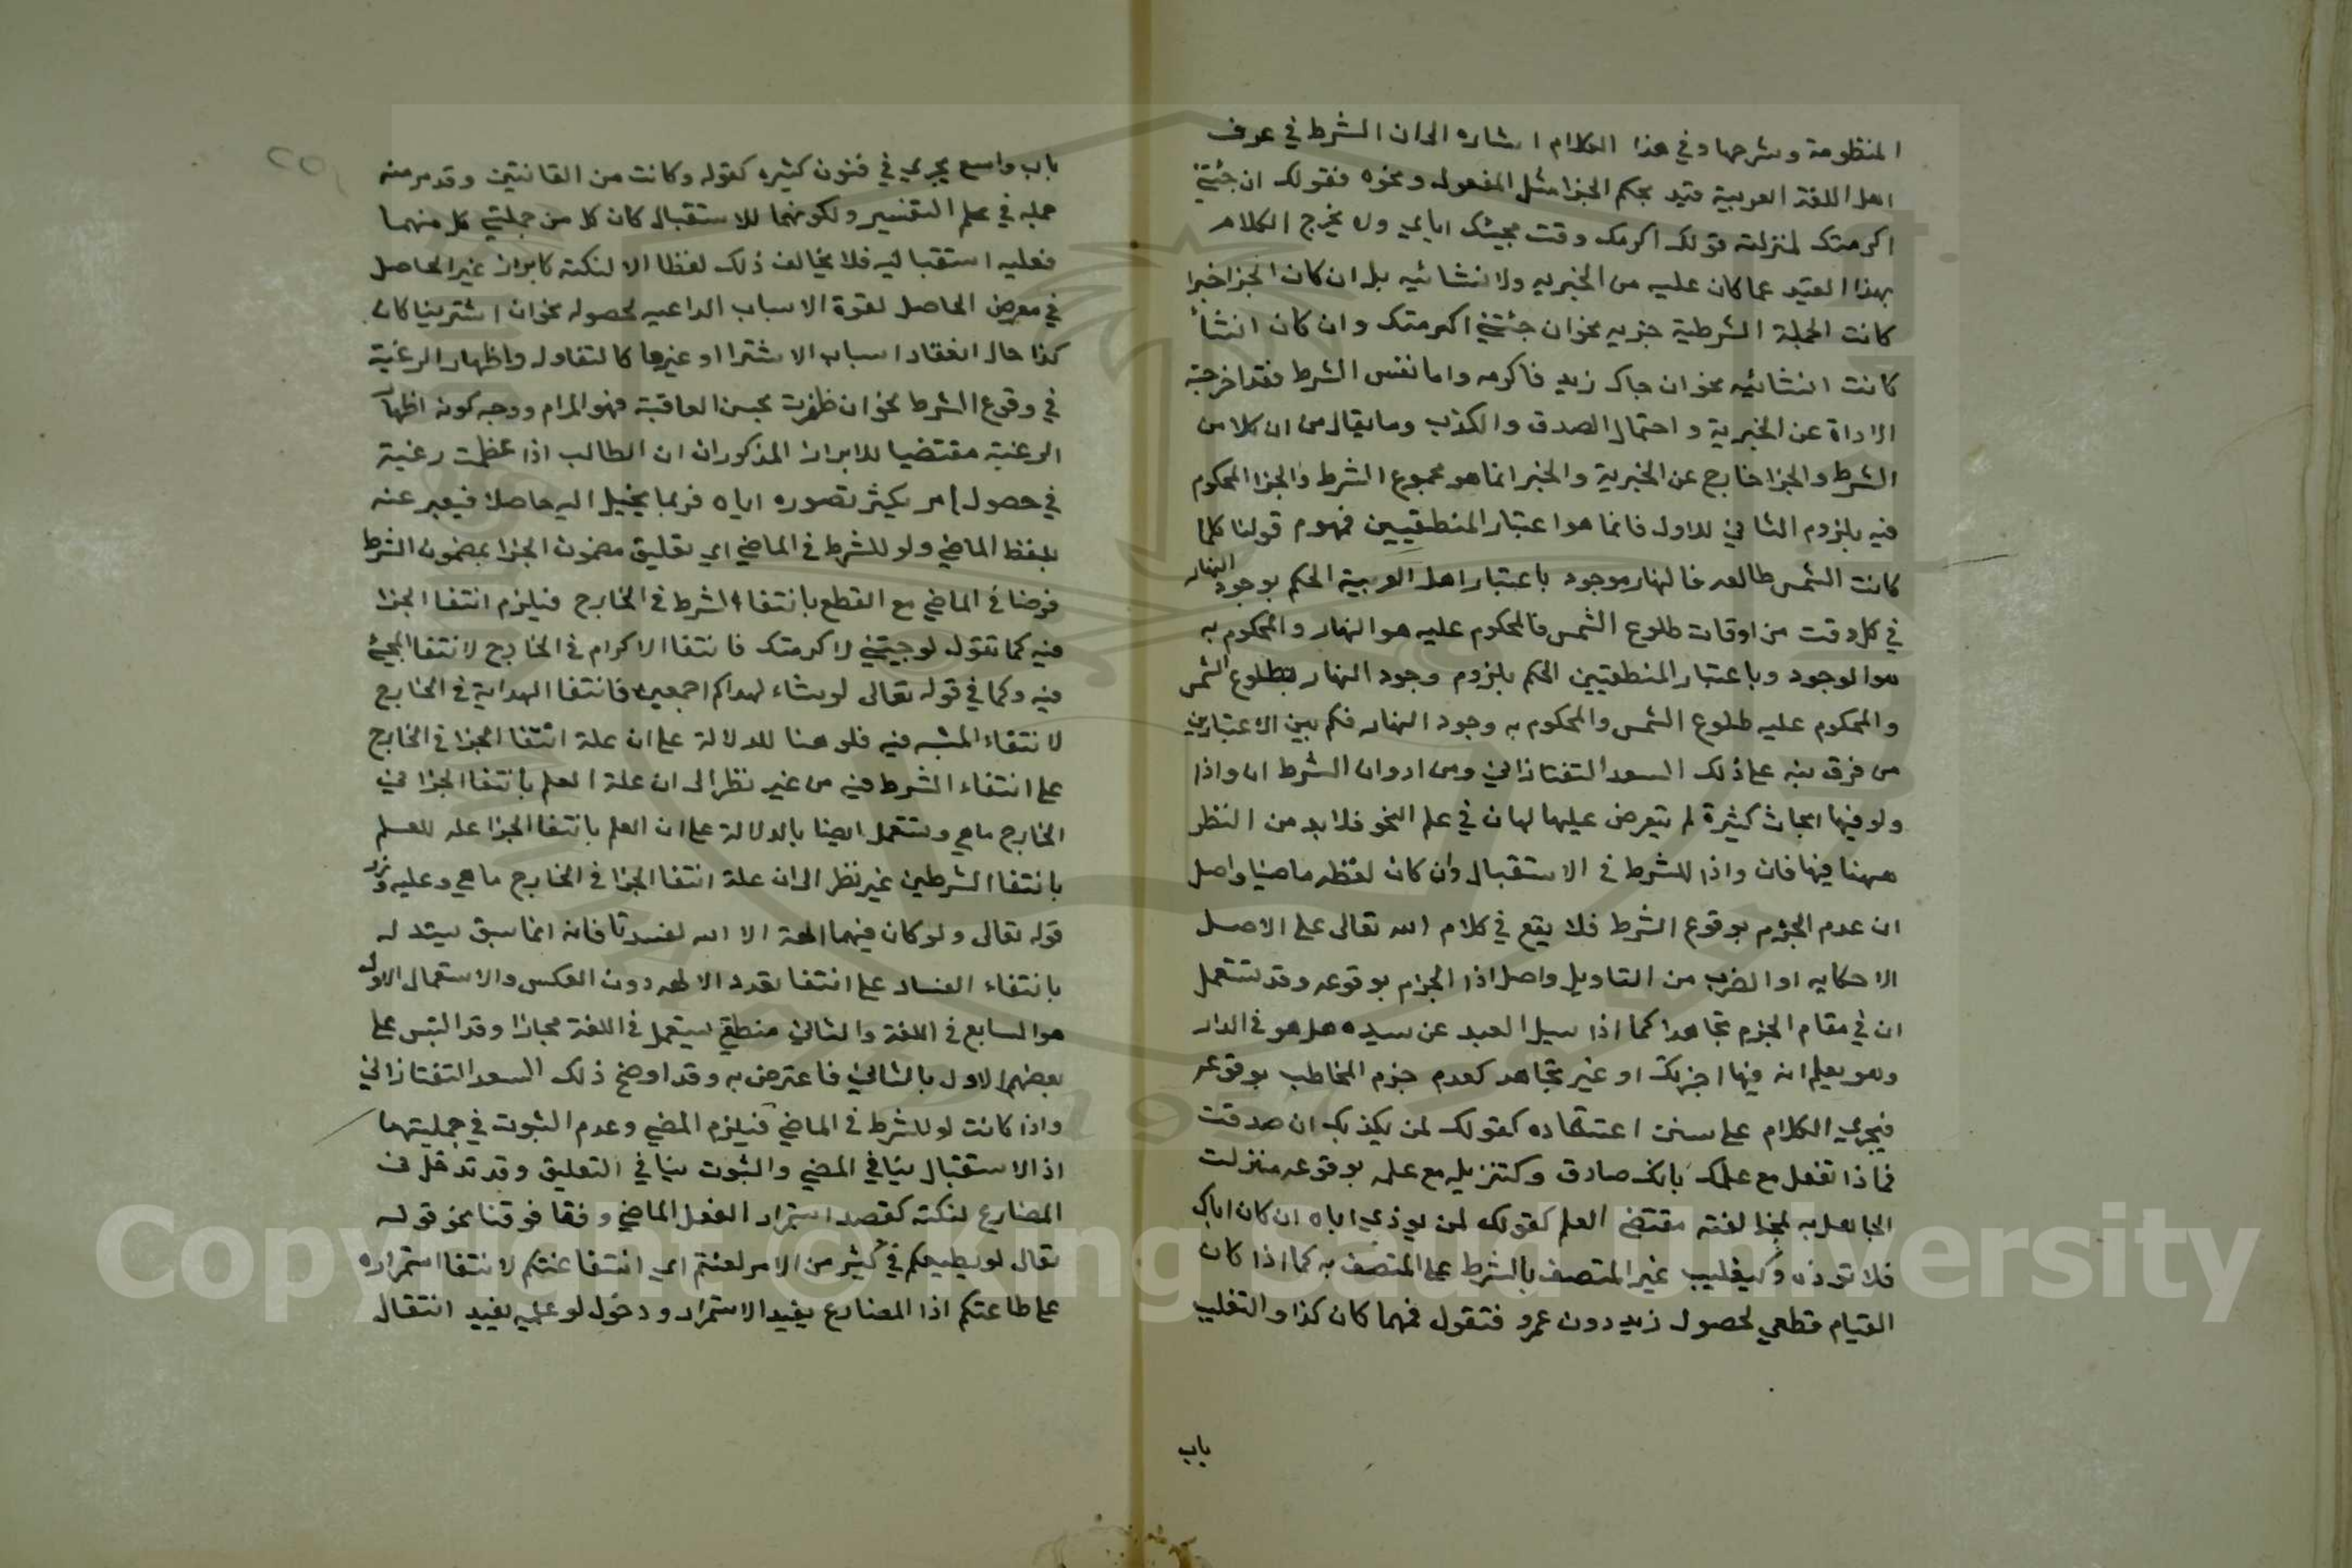 المنظومة وشرحها وفي هذا الكلام اشاره الى ان الشرط في عرف
اهل اللغة العربية قيد بحكم الجزا مثل المفعول ونحوه فقولك ان جئتني
اكرمتك لمنزلة قولك اكرمك وقت مجيئك اياي ولا يخرج الكلام
بهذا القيد عما كان عليه من الخبريه ولانشائيه بل ان كان الجزا خبرا
كانت الجملة الشرطية خبريه نحو ان جئتني اكرمتك وان كان انشأ
كانت انشائيه نحو ان جاك زيد فاكرمه واما نفس الشرط فقد اخرجته
الاداة عن الخبرية واحتمال الصدق والكذب وما يقال من ان كلا من
الشرط والجزا خارج عن الخبرية والخبر انما هو مجموع الشرط والجزا المحكوم
فيه بلزوم الثاني للاول فانما هو اعتبار المنطقيين فمفهوم قولنا كلما
كانت الشمس طالعه فالنهار موجود باعتبار اهل العربية الحكم بوجود النهار
في كل وقت من اوقات طلوع الشمس فالمحكوم عليه هو النهار والمحكوم به
هو الوجود وباعتبار المنطقيين الحكم بلزوم وجود النهار بطلوع الشمس
والمحكوم عليه طلوع الشمس والمحكوم به وجود النهار فكم بين الاعتبارين
من فرق نبه على ذلك السعد التفتازاني ومن ادوات الشرط ان واذا
ولو فيها ابحاث كثيرة لم يتعرض عليها لها في علم النحو فلابد من النظر
ههنا فيها فان واذا للشرط في الاستقبال وان كان لفظه ماضيا واصل
ان عدم الجزم بوقوع الشرط فلا يقع في كلام الله تعالى على الاصل
الا حكايه او الضرب من التاويل واصل اذا الجزم بوقوعه وقد تستعمل
ان في مقام الجزم تجاهدا كما اذا سيل العبد عن سيده هل هو في الدار
وهو يعلم انه فيها اخبرتك او غير تجاهد كعدم جزم المخاطب بوقوعه
فيجري الكلام على سنن اعتقاده كقولك لمن يكذبك ان صدقت
فماذا تفعل مع علمك بانك صادق وكتنزيله مع علمه بوقوعه منزلت
الجاهل به لمخالفته مقتضى العلم كقولك لمن يوذي اباه ان كان اباك
فلا توذه وكتغليب غير المتصف بالشرط على المتصف به كما اذا كان
القيام قطعي لحصول زيد دون عمرو فتقول فهما كان كذا والتغليب
باب
باب واسع يجري في فنون كثيره كقوله وكانت من القانتين وقد مر منه
جمله في علم التفسير ولكونهما للاستقبال كان كل من جملتي كل منهما
فعليه استقباليه فلا يخالف ذلك لفظا الا لنكتة كابراز غير الحاصل
في معرض الحاصل لقوة الاسباب الداعيه لحصوله نحو ان اشترينا كان
كذا حال انعقاد اسباب الاشترا او غيرها كالتفاول واظهار الرغبة
في وقوع الشرط نحو ان ظفرت بحسن العاقبة فهو المرام ووجه كونه اظهار
الرغبة مقتضيا للابراز المذكور ان الطالب اذا عظمت رغبة
في حصول امر يكثر تصوره اياه فربما يخيل اليه حاصلا فيعبر عنه
بلفظ الماضي ولو للشرط في الماضي اي تعليق مضمون الجزا بمضمون الشرط
فرضا في الماضي مع القطع بانتفاء الشرط في الخارج فيلزم انتفا الجزا
فيه كما تقول لو جيتني لاكرمتك فانتفا الاكرام في الخارج لانتفا المجيء
فيه وكما في قوله تعالى لو يشاء لهداكم اجمعين فانتفا الهداية في الخارج
لانتفاء المشيه فيه فلو هنا للدلالة على ان علة انتفا الجزا في الخارج
على انتفاء الشرط فيه من غير نظر الى ان علة العلم بانتفا الجزا في
الخارج ما هي وتستعمل ايضا بالدلالة على ان العلم بانتفا الجزا علة للعلم
بانتفا الشرط من غير نظر الى ان علة انتفا الجزا في الخارج ما هي وعليه ورد
قوله تعالى ولو كان فيهما الهة الا الله لفسدتا فانه انما سبق ليستدل
بانتفاء الفساد على انتفا تعدد الالهه دون العكس والاستعمال الاول
هو السابع في اللغة والثاني منطقي يستعمل في اللغة مجازا وقد التبس على
بعضهم الاول بالثاني فاعترض به وقد اوضح ذلك السعد التفتازاني
واذا كانت لو للشرط في الماضي فيلزم المضي وعدم الثبوت في جملتيهما
اذ الاستقبال ينافي المضي والثبوت ينافي التعليق وقد تدخل في
المضارع لنكتة كقصد استمرار الفعل الماضي وفقا فوقتا نحو قوله
تعالى لو يطيعكم في كثير من الامر لعنتم اي انتفا عنتكم لانتفا استمراره
على طاعتكم اذ المضارع يفيد الاستمرار ودخول لو عليه يفيد انتقال
Copyright © King Saud University